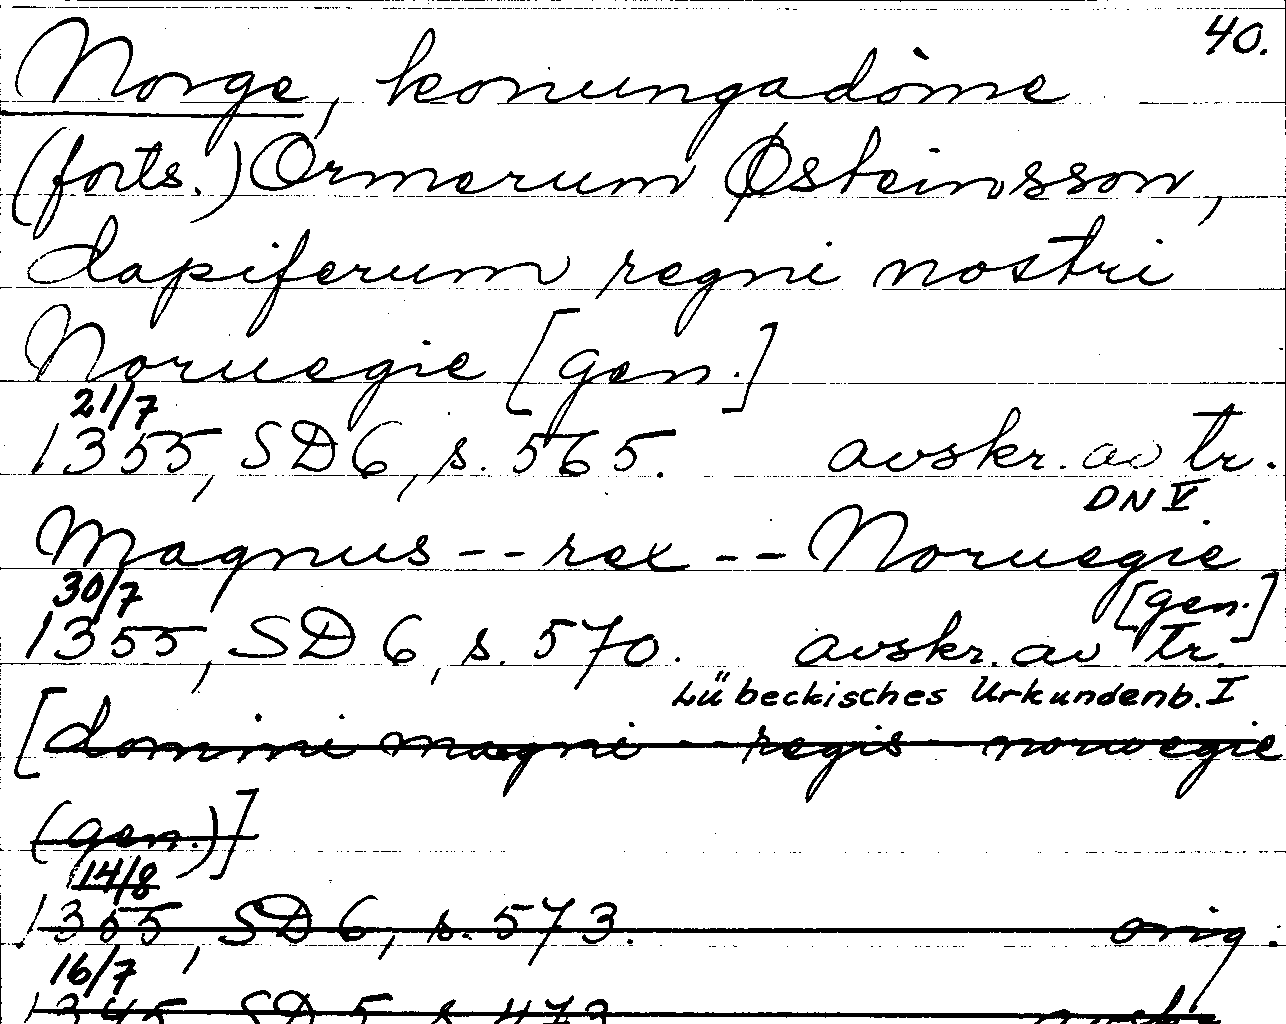 40.
Norge, konungadöme
(forts.) Ormerum Østeinsson,
dapiferum regni nostri
Noruegie [gen.]
21/7
1355, SD 6, s. 565. avskr. av tr.
DN V.
Magnus -- rex -- Noruegie
30/7 [gen.]
1355, SD 6, s. 570. avskr. av tr.
Lübeckisches Urkundenb. I
[domini magni -- regis -- norwegie
(gen.)]
14/8
1355, SD 6, s. 573. orig.
16/7
1345, SD 5, s. 473 avskr.